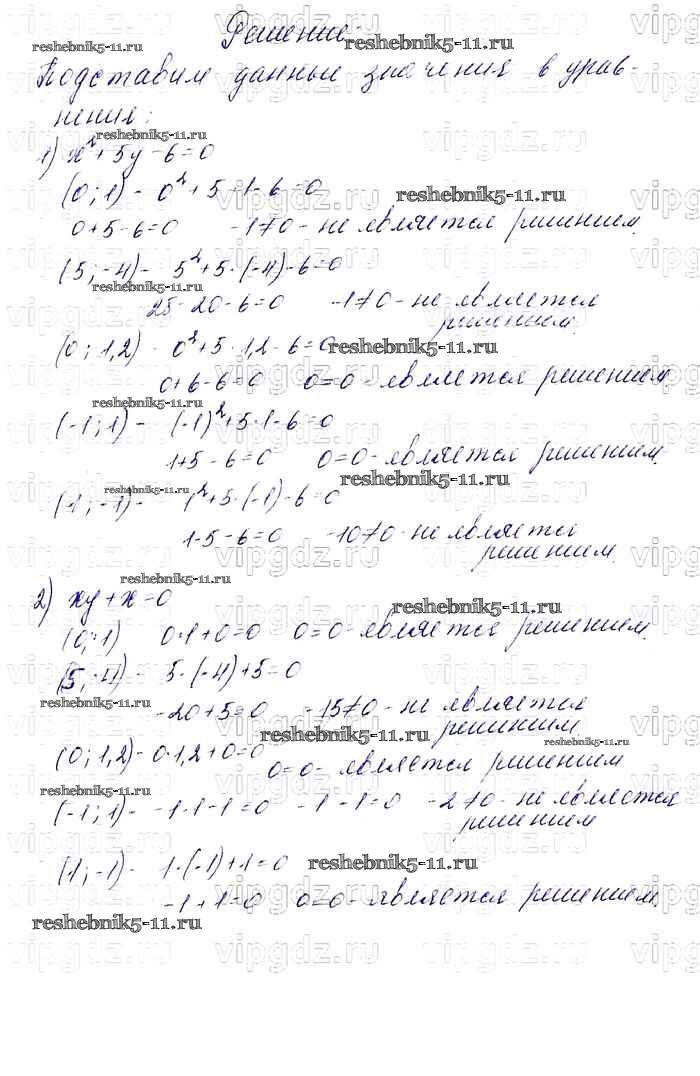 Решение:
Подставим данные значения в урав-
нения:
1) x²+5y-6=0
(0;1) - 0²+5·1-6=0
0+5-6=0 -1≠0 - не является решением.
(5;-4) - 5²+5·(-4)-6=0
25-20-6=0 -1≠0 - не является
решением.
(0;1,2) - 0²+5·1,2-6=0
0+6-6=0 0=0 - является решением
(-1;1) - (-1)²+5·1-6=0
1+5-6=0 0=0 - является решением.
(-1;-1) - 1²+5·(-1)-6=0
1-5-6=0 -10≠0 - не является
решением.
2) xy+x=0
(0;1) 0·1+0=0 0=0 - является решением.
(5;-4) - 5·(-4)+5=0
-20+5=0 -15≠0 - не является
решением
(0;1,2) - 0·1,2+0=0
0=0 - является решением
(-1;1) - -1·1-1=0 -1-1=0 -2≠0 - не является
решением
(1;-1) - 1·(-1)+1=0
-1+1=0 0=0 - является решением.
reshebnik5-11.ru
vipgdz.ru